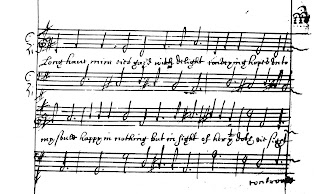 Long haue mine eies gaz'd with delight conveying hopes vnto
my soule happy in nothing but in sight of her that doth